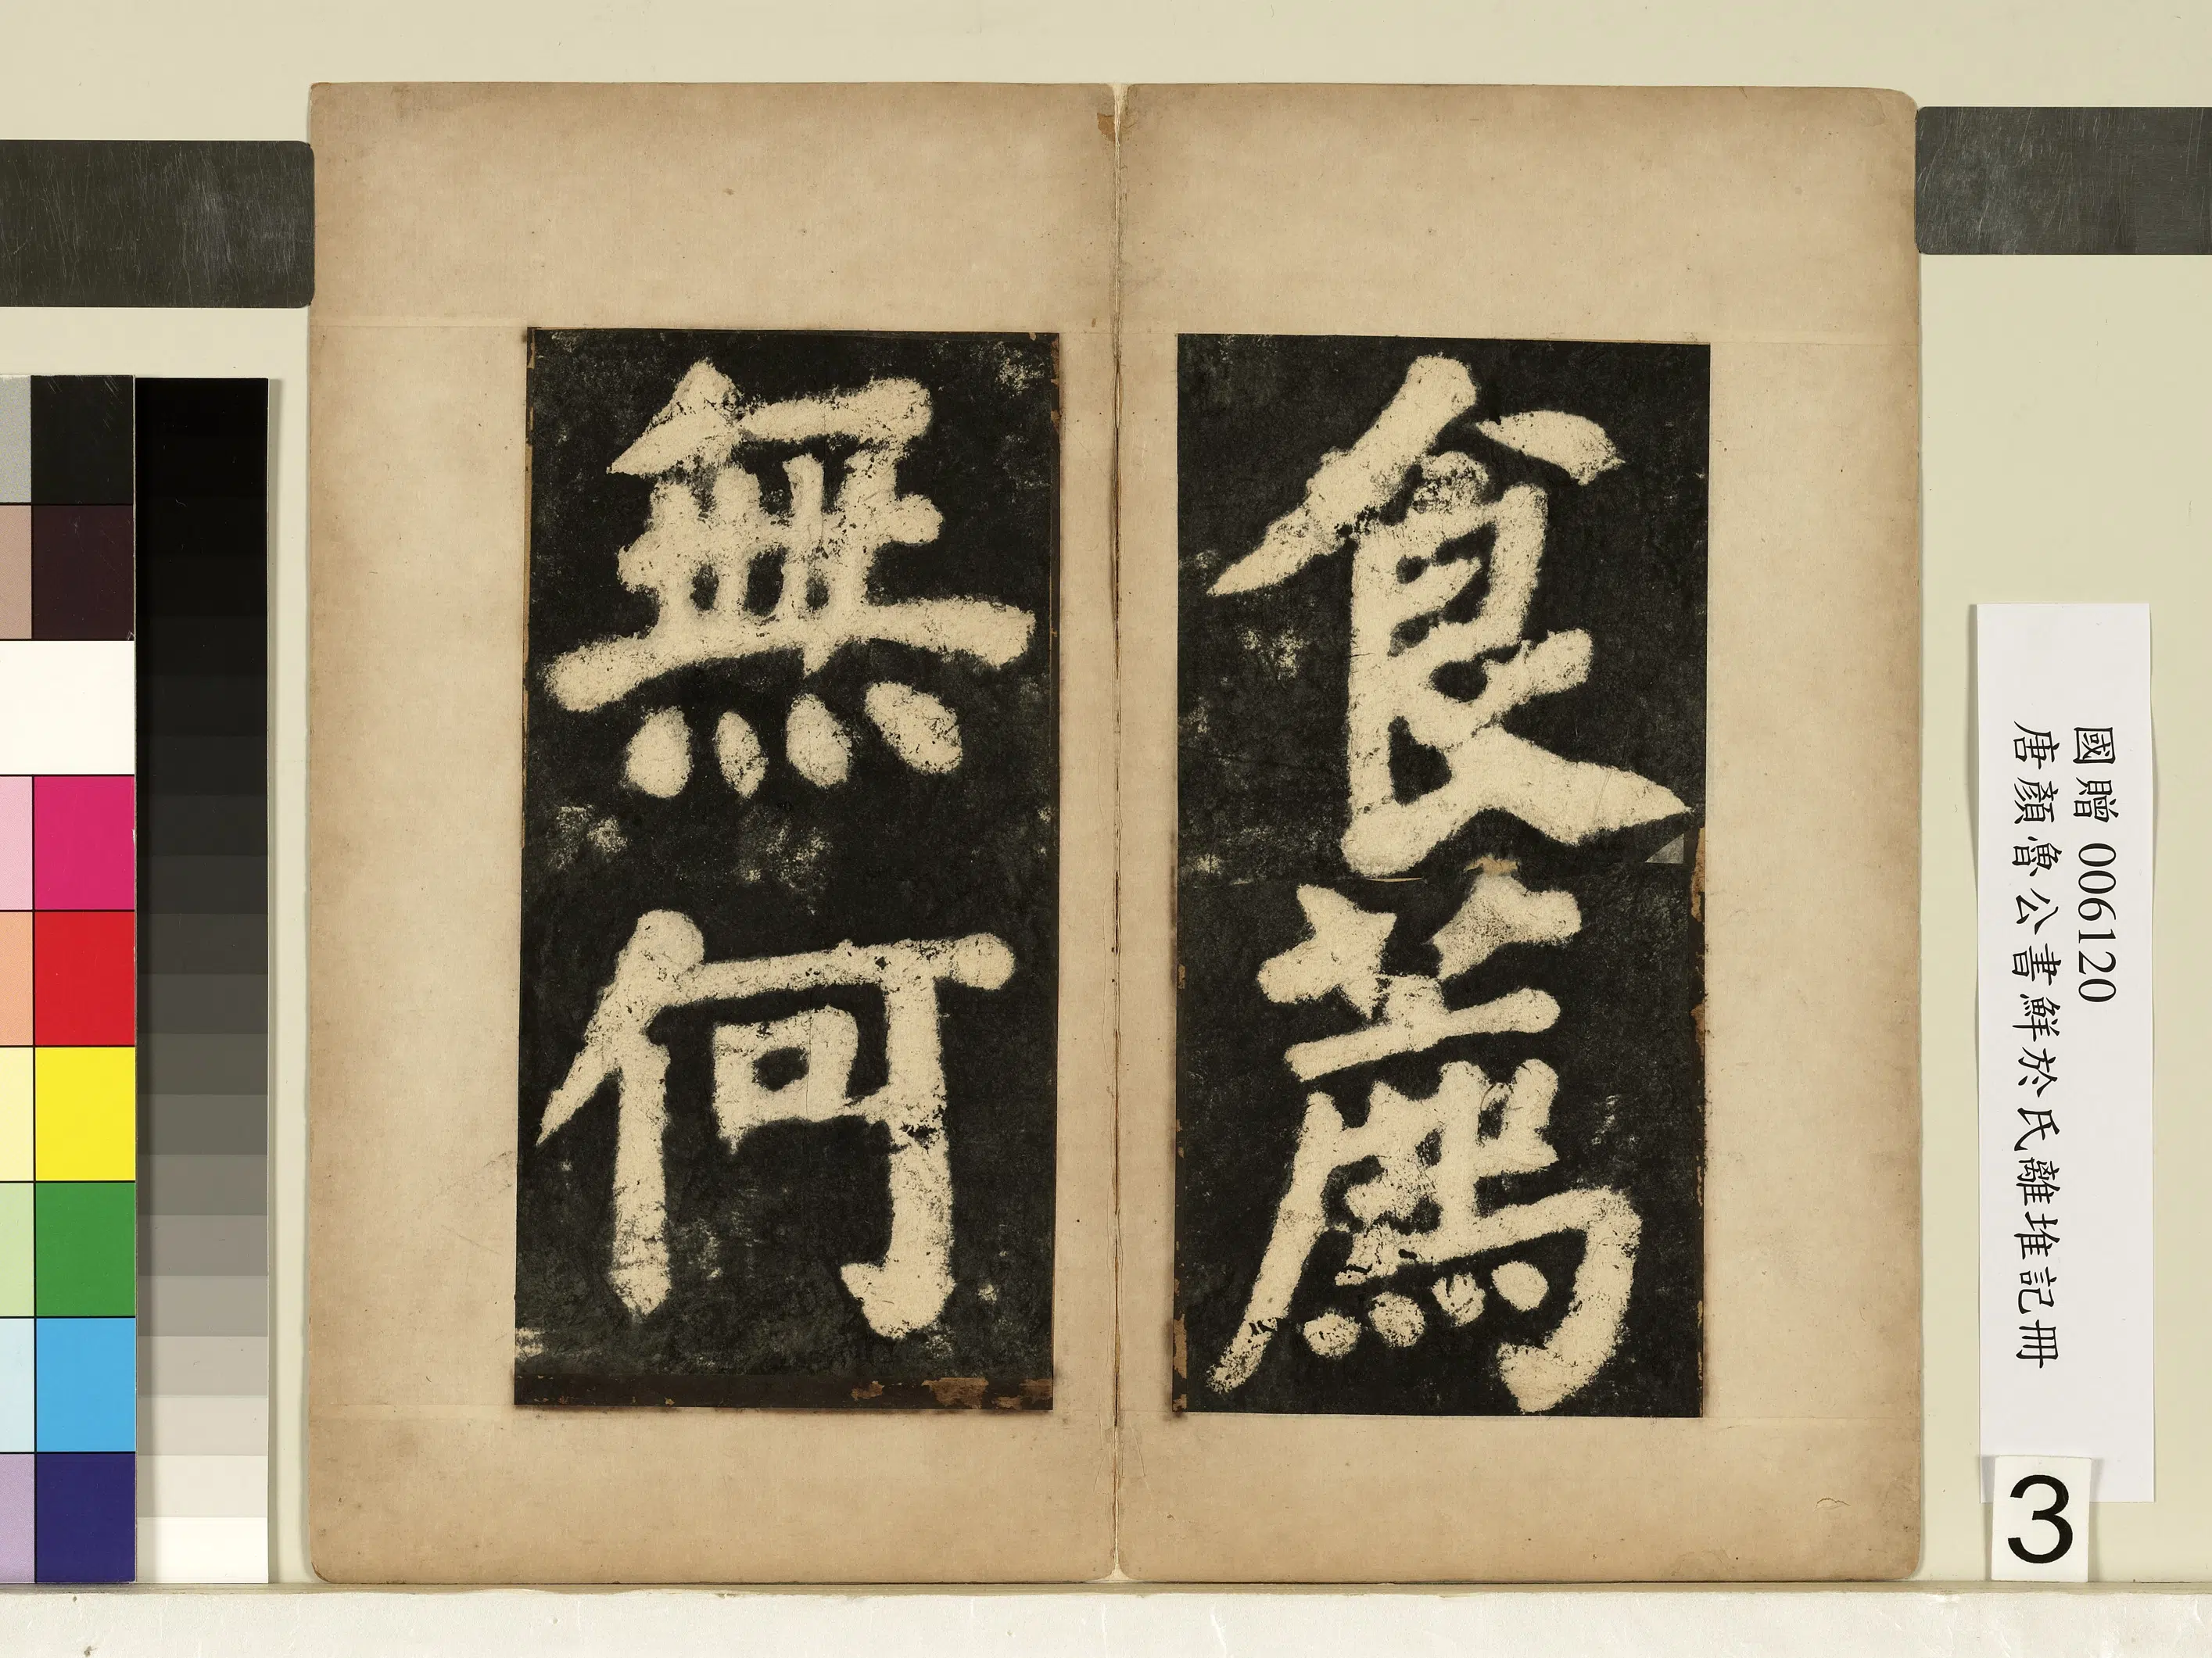 食薦
無何
國贈 006120
唐顏魯公書鮮於氏離堆記冊
3